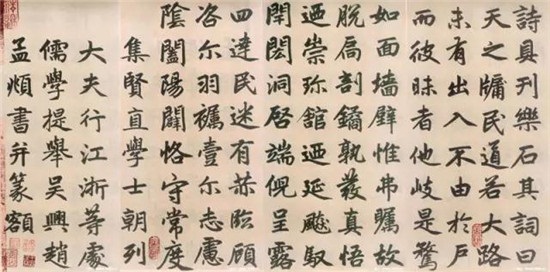 詩具刋樂石其詞曰
天之牖民道若大路
未有出入不由於戶
而彼昧者他岐是騖
如面墻壁惟弗矚故
脫扃剖鐍孰發真悟
迺崇珎館迺延飈馭
閈閎洞啓端倪呈露
四達民迷有赫臨顧
咨尔羽襬壹尔志慮
陰闔陽闢恪守常度
集賢直學士朝列
大夫行江浙等處
儒學提舉吳興趙
孟頫書并篆額